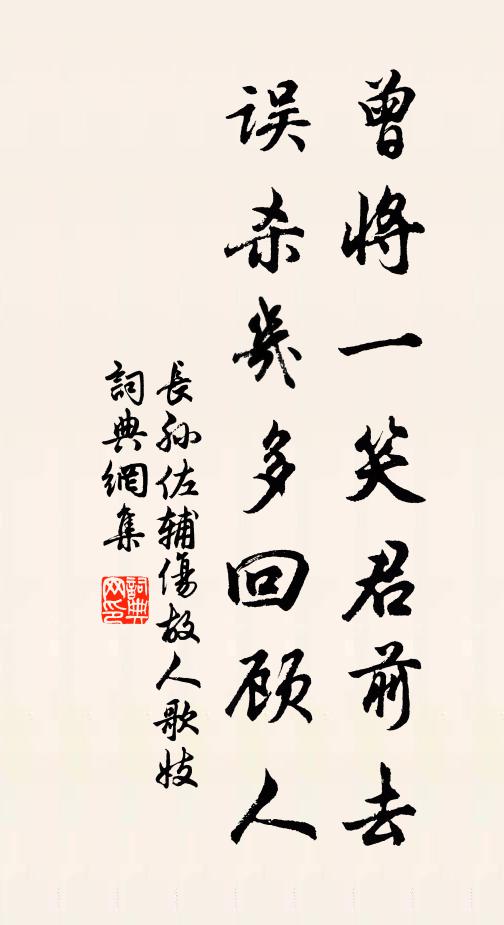 曾将一笑君前去
误杀几多回顾人
長孙佐辅傷故人歌妓
詞典網集
詞典网印